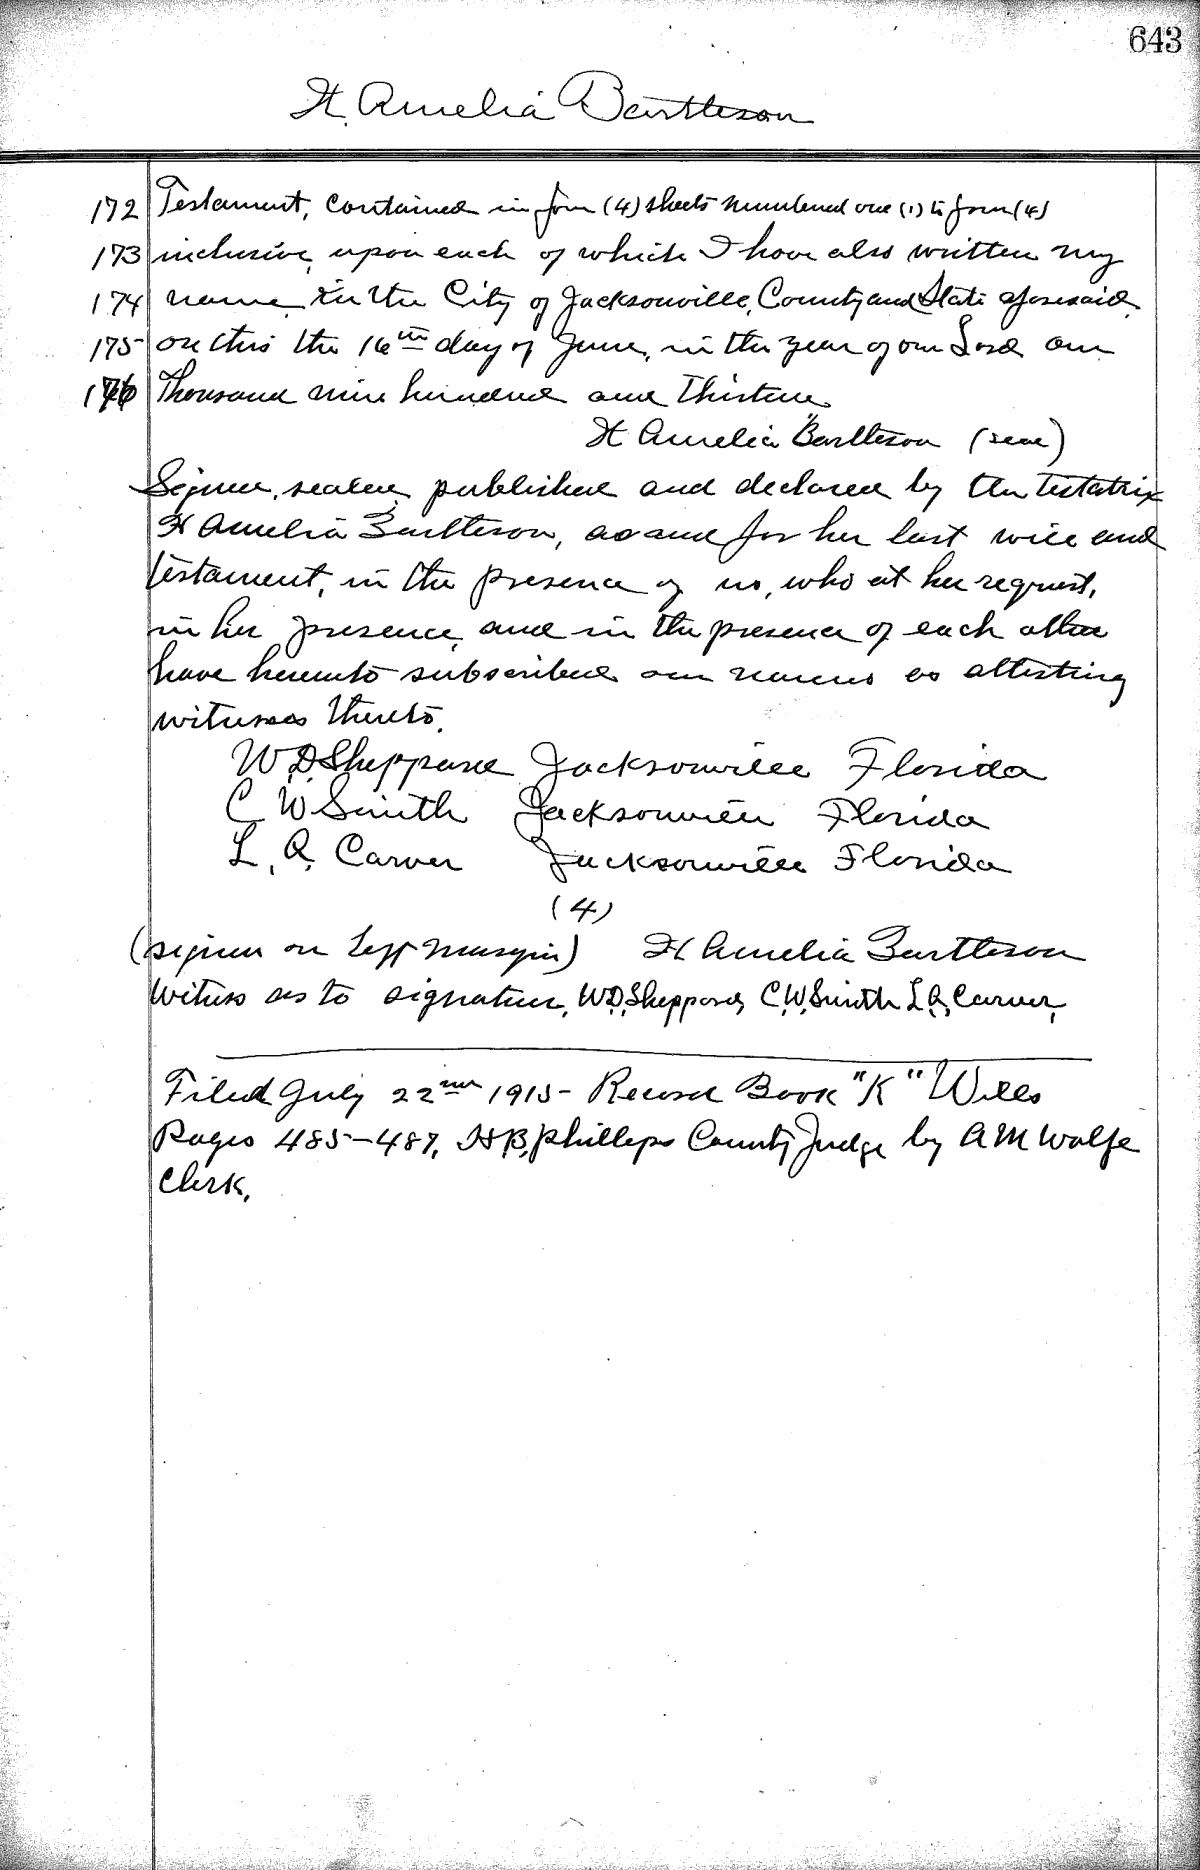 643
H. Amelia Bartleson
172 Testament, contained in four (4) sheets numbered one (1) to four (4)
173 inclusive, upon each of which I have also written my
174 name, in the City of Jacksonville, County and State aforesaid,
175 on this the 16th day of June, in the year of our Lord one
176 Thousand nine hundred and thirteen
H Amelia Bartleson (seal)
Signed, sealed, published and declared by the Testatrix
H Amelia Bartleson, as and for her last will and
testament, in the presence of us, who at her request,
in her presence, and in the presence of each other
have hereunto subscribed our names as attesting
witnesses thereto.
W.D. Sheppard Jacksonville Florida
C W Smith Jacksonville Florida
L. Q. Carver Jacksonville Florida
(4)
(signed on Left margin) H Amelia Bartleson
Witness as to signature, W.D. Sheppard, C.W. Smith L.Q. Carver,
Filed July 22nd 1915- Record Book "K" Wills
Pages 485-487, H.B. Phillips County Judge by A M Wolfe
Clerk.